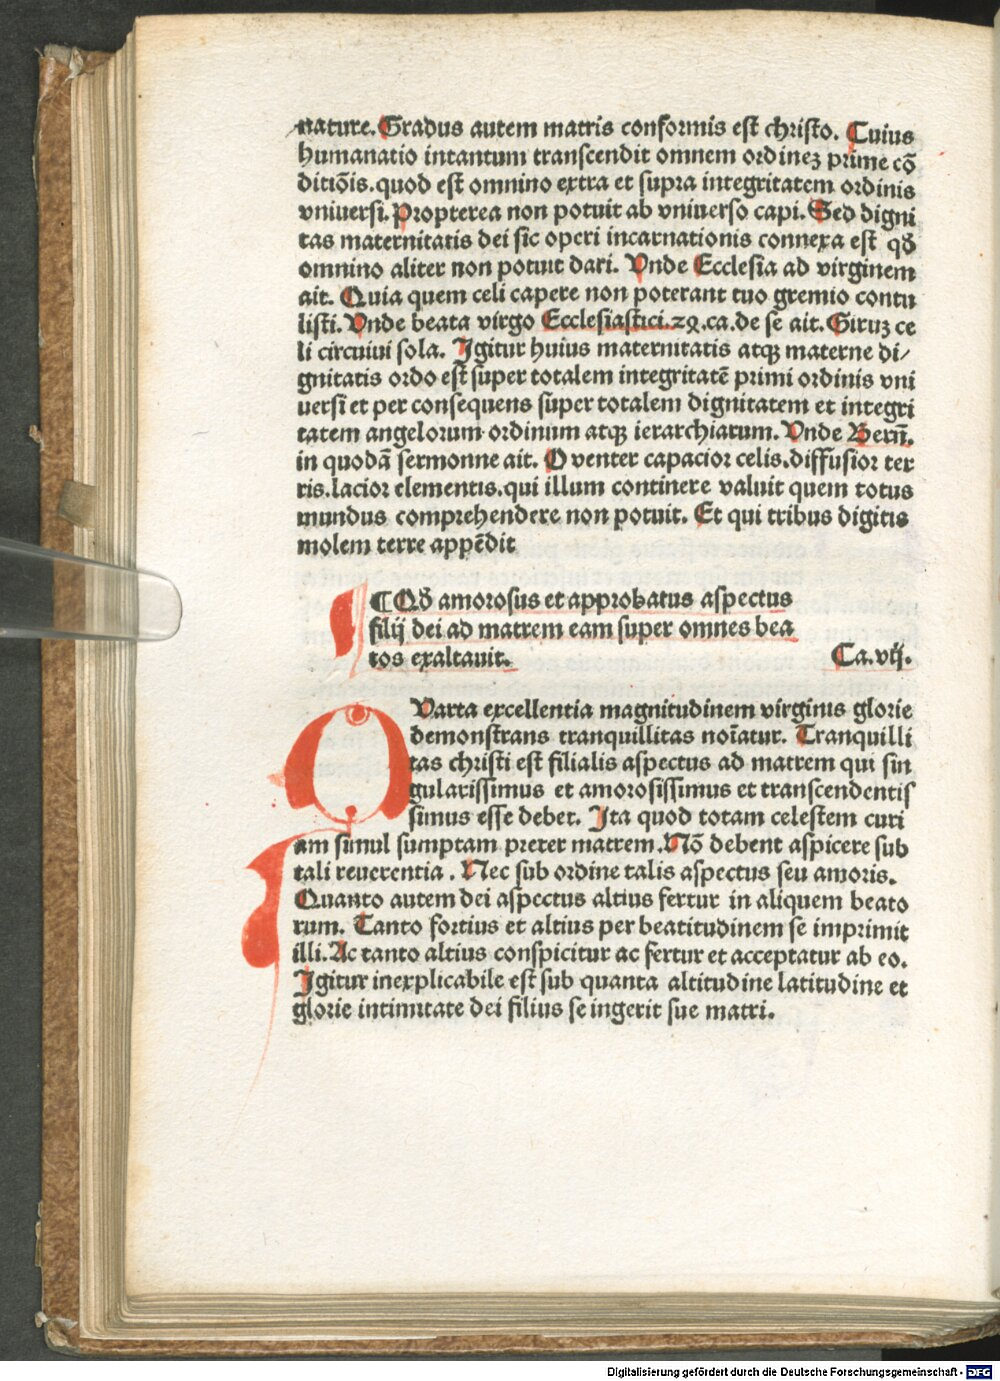 nature. Gradus autem matris conformis est christo. Cuius
humanatio intantum transcendit omnem ordineʒ prime cō
ditiōis. quod est omnino extra et supra integritatem ordinis
vniuersi. Propterea non potuit ab vniuerso capi. Sed digni
tas maternitatis dei sic operi incarnationis connexa est qđ
omnino aliter non potuit dari. Vnde Ecclesia ad virginem
ait. Quia quem celi capere non poterant tuo gremio contu
listi. Vnde beata virgo Ecclesiastici. 29. ca. de se ait. Giruʒ ce
li circuiui sola. Igitur huius maternitatis atqʒ materne di/
gnitatis ordo est super totalem integritatē primi ordinis vni
uersi et per consequens super totalem dignitatem et integri
tatem angelorum ordinum atqʒ ierarchiarum. Vnde Bern̄.
in quodā sermonne ait. O venter capacior celis. diffusior ter
ris. lacior elementis. qui illum continere valuit quem totus
mundus comprehendere non potuit. Et qui tribus digitis
molem terre appēdit
¶ Qđ amorosus et approbatus aspectus
filij dei ad matrem eam super omnes bea
tos exaltauit. Ca. vij.
QVarta excellentia magnitudinem virginis glorie
demonstrans tranquillitas notatur. Tranquilli
tas christi est filialis aspectus ad matrem qui sin
gularissimus et amorosissimus et transcendentis
simus esse debet. Ita quod totam celestem curi
am simul sumptam preter matrem. Nō debent aspicere sub
tali reuerentia. Nec sub ordine talis aspectus seu amoris.
Quanto autem dei aspectus altius fertur in aliquem beato
rum. Tanto fortius et altius per beatitudinem se imprimit
illi. Ac tanto altius conspicitur ac fertur et acceptatur ab eo.
Igitur inexplicabile est sub quanta altitudine latitudine et
glorie intimitate dei filius se ingerit sue matri.
Digitalisierung gefördert durch die Deutsche Forschungsgemeinschaft - DFG